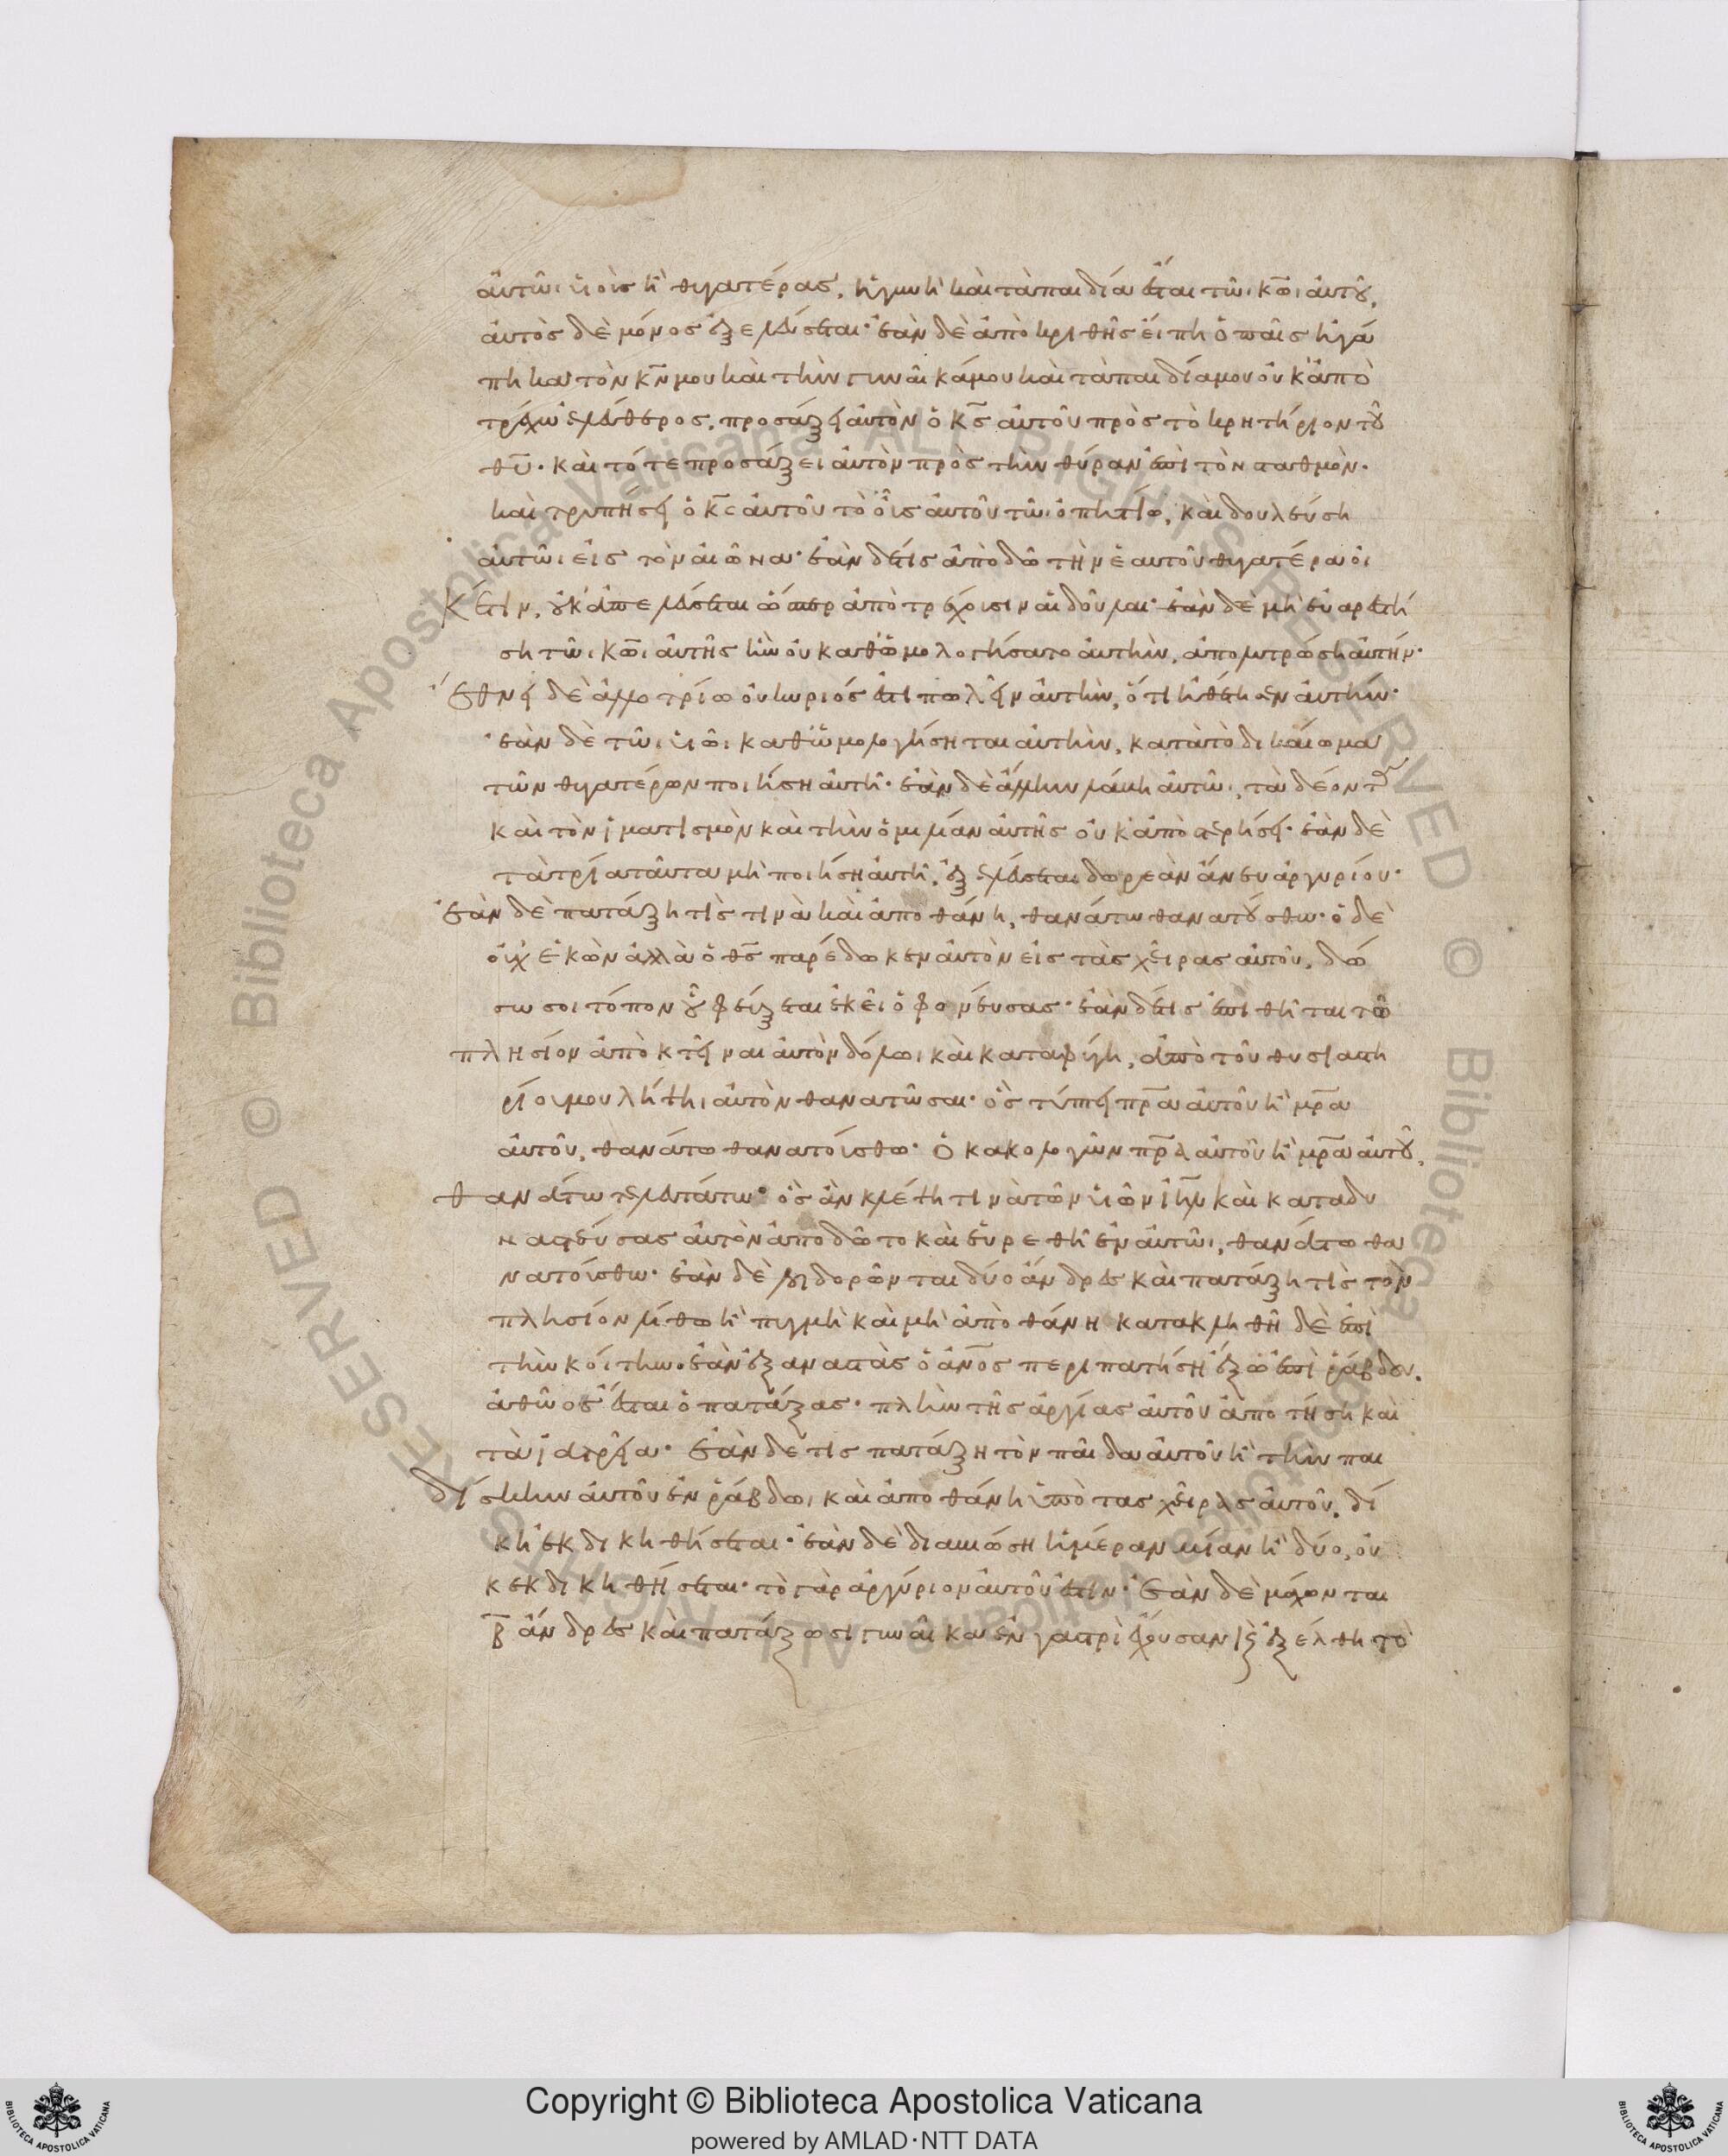 ἀυτῶι υἱοὺς ἢ θυγατέρας, ἡ γυνὴ καὶ τὰ παιδία ἔσται τῶι κω̅ι ἀυτοῦ,
ἀυτὸς δὲ μόνος ἐξελεύσεται· ἐὰν δὲ ἀποκριθῆς εἴπη ὁ παῖς ἠγά
πηκα τὸν κν̅ μου καὶ τὴν γυναῖκά μου καὶ τὰ παιδία μου οὐκ ἀπο
τρέχω ἐλεύθερος, προσάξει ἀυτὸν ὁ κς̅ ἀυτοῦ πρὸς τὸ κρητήριον τοῦ
θυ̅· καὶ τότε προσάξει ἀυτὸν πρὸς τὴν θύραν ἐπὶ τὸν σταθμὸν·
καὶ τρυπήσει ὁ κς̅ ἀυτοῦ τὸ οὖς ἀυτοῦ τῶι ὀπητίω, καὶ δουλεύση
ἀυτῶι εἰς τὸν αἰῶνα· ἐὰν δέ τις ἀποδῶ τὴν ἑαυτοῦ θυγατέρα οἰ
κέτιν, οὐκ ἀπελεύσεται ὥσπερ ἀποτρέχουσιν αἱ δοῦλαι· ἐὰν δὲ μὴ εὐαρεστή
ση τῶι κω̅ι ἀυτῆς ἣν οὐ καθωμολογήσατο ἀυτὴν, ἀπολυτρώση ἀυτήν·
ἔθνει δὲ ἀλλοτρίω οὐ κυριός ἐστι πωλεῖν ἀυτὴν, ὅτι ἠθέτησεν ἀυτήν·
ἐὰν δὲ τῶι υἱῶι καθωμολογήσηται ἀυτὴν, κατὰ τὸ δικαίωμα
τῶν θυγατέρων ποιήση ἀυτῆ· ἐὰν δὲ ἄλλην λάβη ἀυτῶι, τὰ δέοντα
καὶ τὸν ἱματισμὸν καὶ τὴν ὁμιλίαν ἀυτῆς οὐκ ἀποστερήσει· ἐὰν δὲ
τὰ τρία ταῦτα μὴ ποιήση ἀυτῆ, ἐξελεύσεται δωρεὰν ἄνευ ἀργυρίου·
Ἐὰν δὲ πατάξη τίς τινὰ καὶ ἀποθάνη, θανάτω θανατούσθω· ὁ δὲ
οὐχ ἑκὼν ἀλλὰ ὁ θς̅ παρέδωκεν ἀυτὸν εἰς τὰς χεῖρας ἀυτοῦ, δώ
σω σοι τόπον οὗ φεύξεται ἐκεῖ ὁ φονεύσας· ἐὰν δέ τις ἐπιθῆται τῶ
πλησίον ἀποκτεῖναι ἀυτὸν δόλωι καὶ καταφύγη, ἀπὸ τοῦ θυσιαστη
ρίου μου λήψηι ἀυτὸν θανατῶσαι· ὃς τύπτει πρ̅α ἀυτοῦ ἢ μρ̅α
ἀυτοῦ, θανάτω θανατούσθω· Ὁ κακολογῶν πρ̅α ἀυτοῦ ἢ μρ̅α ἀυτοῦ,
θανάτω τελευτάτω· ὃς ἂν κλέψη τινὰ τῶν υἱῶν ιη̅λ καὶ καταδυ
ναστεύσας ἀυτὸν ἀποδῶτο καὶ εὑρεθῆ ἐν ἀυτῶι, θανάτω θα
νατούσθω· ἐὰν δὲ λοιδορῶνται δύο ἄνδρες καὶ πατάξη τὶς τὸν
πλησίον λίθω ἢ πυγμῆ καὶ μὴ ἀποθάνη κατακλιθῆ δὲ ἐπὶ
τὴν κοίτην· ἐὰν ἐξαναστὰς ὁ ἄνος̅ περιπατήση ἔξω ἐπὶ ῥάβδου,
ἀθῶος ἔσται ὁ πατάξας· πλὴν τῆς ἀργίας ἀυτοῦ ἀποτήση καὶ
τὰ ἰατρεῖα· Ἐὰν δέ τις πατάξη τὸν παῖδα ἀυτοῦ ἢ τὴν παι
δίσκην ἀυτοῦ ἐν ῥάβδωι καὶ ἀποθάνη ὑπὸ τας χεῖρας ἀυτοῦ, δί
κη ἐκδικηθήσεται· ἐὰν δὲ διαβιώση ἡμέραν μίαν ἢ δύο, οὐ
κ ἐκδικηθήσεται· τὸ γὰρ ἀργύριον ἀυτοῦ ἐστιν· Ἐὰν δὲ μάχονται
β̅ ἄνδρες καὶ πατάξωσι γυναῖκα ἐν γαστρὶ ἔχουσαν καὶ ἐξέλθη τὸ
Copyright © Biblioteca Apostolica Vaticana
powered by AMLAD·NTT DATA